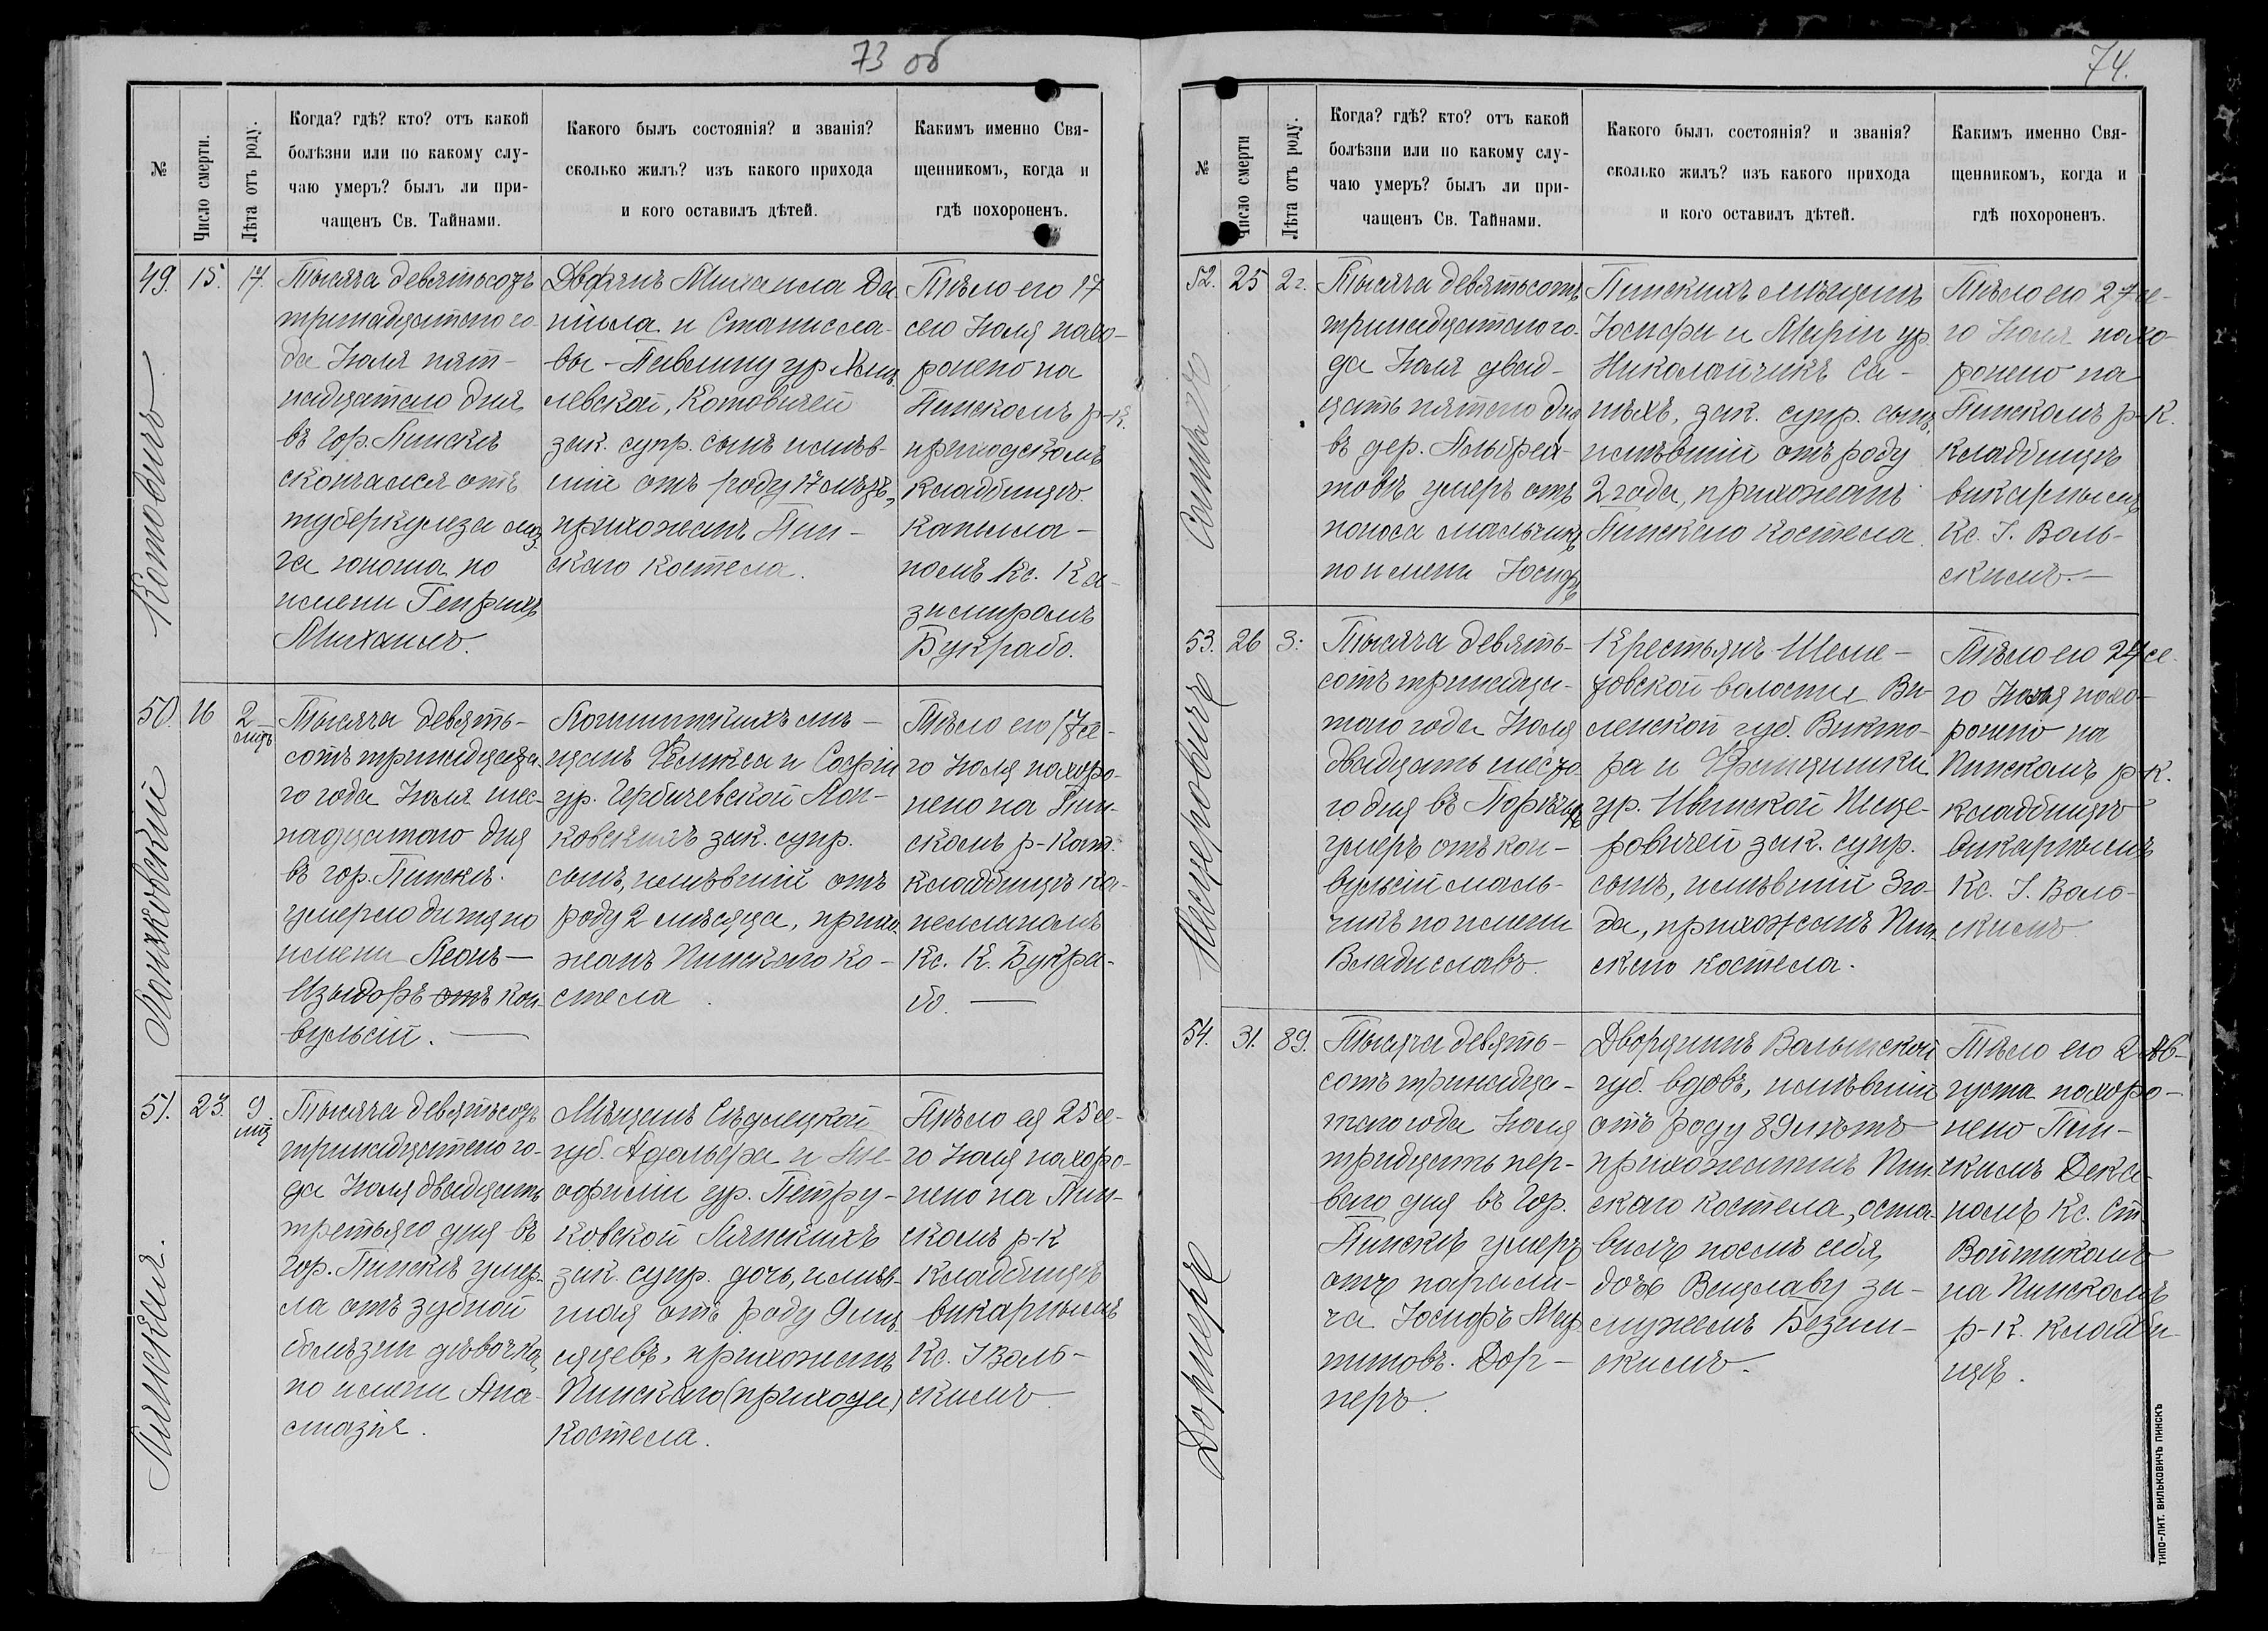 73 об
№
Число смерти.
Лѣта отъ роду.
Когда? гдѣ? кто? отъ какой
болѣзни или по какому слу-
чаю умеръ? былъ ли при-
чащенъ Св. Тайнами.
Какого былъ состоянія? и званія?
сколько жилъ? изъ какого прихода
и кого оставилъ дѣтей.
Какимъ именно Свя-
щенникомъ, когда и
гдѣ похороненъ.
49.
15.
17.
Котовичъ
Тысяча девятьсотъ
тринадцатаго го-
да Іюля пят-
надцатаго дня
въ гор. Пинскѣ
скончался отъ
туберкулеза моз
га юноша по
имени Генрихъ
Михаилъ.
Дворянъ Михаила Да
ніила и Станисла-
вы-Павлину ур
левской, Котовичей
зак. супр. сынъ имѣв-
шій отъ роду 17 лѣтъ,
прихожанъ Пин-
скаго костела.
Тѣло его 17
сего Іюля похо-
ронено на
Пинскомъ р-К.
приходскомъ
кладбищѣ
капелла-
номъ Кс. Ка-
зимиромъ
Букрабо.
50.
16
2
мѣс
Лонцковскій
Тысяча девять-
сотъ тринадцата
го года Іюля шес-
надцатаго дня
въ гор. Пинскѣ.
умерло дитя по
имени Леонъ-
Изыдоръ отъ кон-
вульсій.
мѣ-
щанъ Феликса и Софіи
ур. Гербичевской Лон-
ковскихъ зак. супр.
сынъ, имѣвшій отъ
роду 2 мѣсяца, прихо-
жанъ Пинскаго ко-
стела.
Тѣло его 17 се-
го Іюля похоро-
нено на Пин-
скомъ р-Кат.
кладбищѣ ка-
пелланомъ
Кс. К. Букра-
бо.
51.
23.
9.
мѣс
Лянскія.
Тысяча девятьсотъ
тринадцатаго го-
да Іюля двадцать
третьяго дня въ
гор. Пинскѣ умер-
ла отъ зубной
болѣзни дѣвочка
по имени Ана-
стазія.
Мѣщанъ Сѣдлецкой
губ. Адольфа и Тео-
офиліи ур. Петру-
ковской Лянскихъ
зак. супр. дочь, имѣв-
шая отъ роду 9 мѣ-
сяцевъ, прихожанъ
Пинскаго (прихода)
костела.
Тѣло ея 25 се-
го Іюля похоро-
нено на Пин-
скомъ р-К
кладбищѣ
викарнымъ
Кс. І Воль-
скимъ
74.
№
Число смерти
Лѣта отъ роду.
Когда? гдѣ? кто? отъ какой
болѣзни или по какому слу-
чаю умеръ? былъ ли при-
чащенъ Св. Тайнами.
Какого былъ состоянія? и званія?
сколько жилъ? изъ какого прихода
и кого оставилъ дѣтей.
Какимъ именно Свя-
щенникомъ, когда и
гдѣ похороненъ.
52.
25
2 г.
Тысяча девятьсотъ
тринадцатаго го-
да Іюля двад-
цать пятаго дня
въ дер.
товѣ умеръ отъ
поноса мальчикъ
по имени Іосифъ
Пинскихъ мѣщанъ
Іосифа и Маріи ур.
Николайчикъ Са-
зак. супр. сынъ,
имѣвшій отъ роду
2 года, прихожанъ
Пинскаго костела.
Тѣло его 27 се-
го Іюля похо-
ронено на
Пинскомъ р-К.
кладбищѣ
викарнымъ
Кс. І. Воль-
скимъ.-
53.
26
3.
Мацеровичъ
Тысяча девять-
сотъ тринадца-
таго года Іюля
двадцать шесто-
го дня въ
умеръ отъ кон-
вульсій маль-
чикъ по имени
Владиславъ.
Крестьянъ Шеме-
товской волости Ви-
ленской губ. Викто-
ра и Францишки
ур. Ивашкой Маце-
ровичей зак. супр.
сынъ, имѣвшій 3 го-
да, прихожанъ Пин-
скаго костела.
Тѣло его 27 се-
го Іюля похо-
ронено на
Пинскомъ р-К.
кладбищѣ
викарнымъ
Кс. І. Воль-
скимъ
54.
31.
89.
Дорперъ
Тысяча девять-
сотъ тринадца-
таго года Іюля
тридцать пер-
ваго дня въ гор.
Пинскѣ умеръ
отъ парали-
ча Іосифъ Мар
тиновъ. Дор-
перъ.
Дворянинъ Волынской
губ. вдовъ, имѣвшій
отъ роду 89 лѣтъ
прихожанинъ Пин-
скаго костела, оста-
вилъ послѣ себя
дочь Вацлаву за-
мужемъ Безым-
скимъ.
Тѣло его 2 Ав-
густа похоро-
нено Пин-
скимъ Дека-
номъ Кс. Ст.
Войтикомъ
на Пинскомъ
р-К. кладби
щѣ.
ТИПО-ЛИТ. ВИЛЬКОВИЧЪ ПИНСКЪ